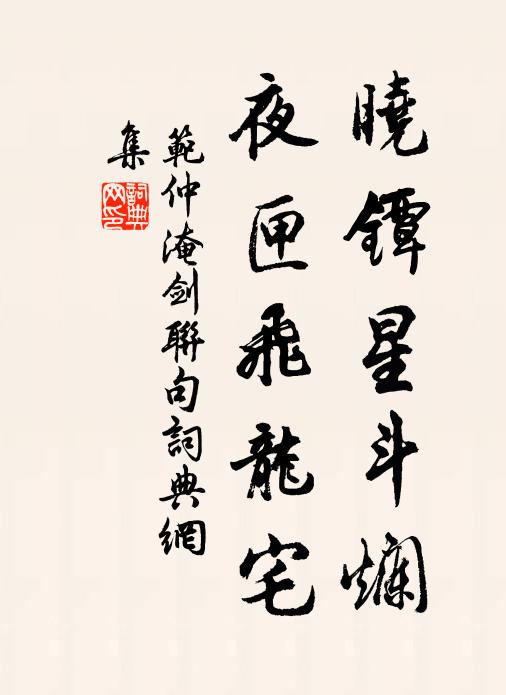 曉鐔星斗爛
夜匣飛龍宅
範仲淹劍聯句詞典網
集
詞典
网印